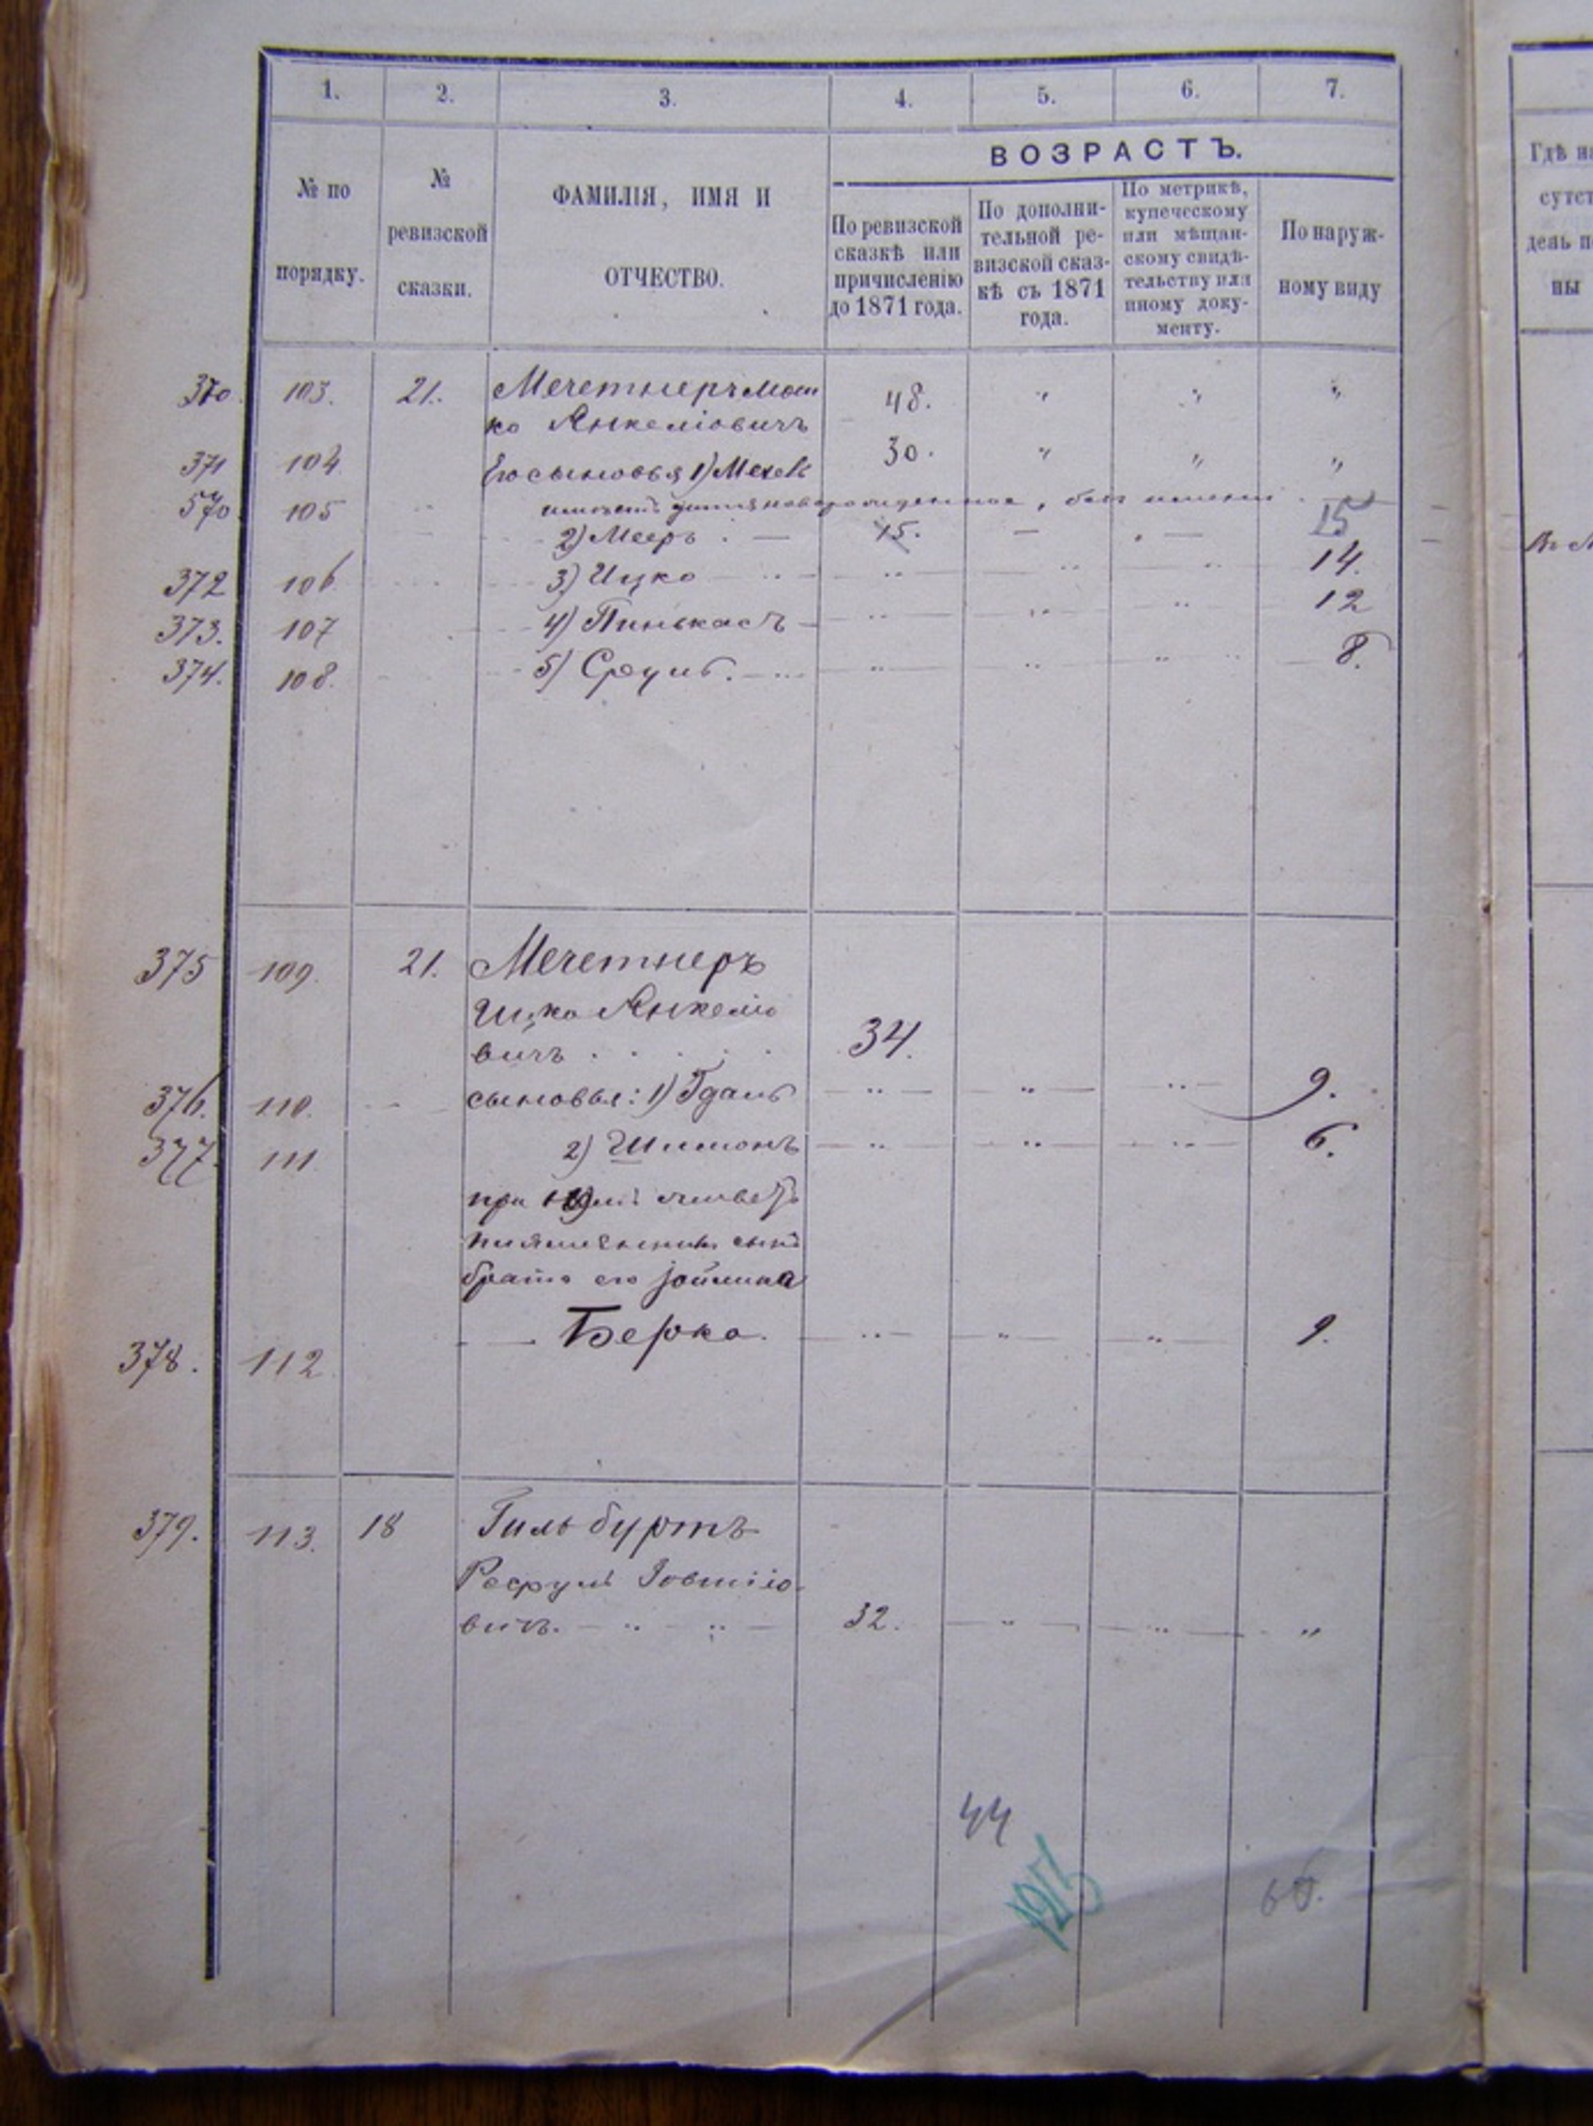 1. 2. 3. 4. 5. 6. 7.
№ по порядку.
№ ревизской сказки.
ФАМИЛІЯ, ИМЯ И ОТЧЕСТВО.
ВОЗРАСТЪ.
По ревизской сказкѣ или причисленію до 1871 года.
По дополнительной ревизской сказкѣ съ 1871 года.
По метрикѣ, купеческому или мѣщанскому свидѣтельству или иному документу.
По наружному виду
Гдѣ на
сутст
день п
ны
370. 103. 21. Мечетнеръ Мош
ко Янкеліовичъ 48. " " "
371 104 Его сыновья 1) 30. " " "
570 105 новорожденное, безъ имени
2) Мееръ . — 15. — . — 15
372 106 3) Ицко 14.
373. 107 4) Пинькасъ 12
374. 108. 5) Сруль. 8.
375 109. 21. Мечетнеръ
Ицко Янкеліо
вичъ . . . . . 34.
376. 110. сыновья: 1) Гдаль 9.
377. 111 2) Шимонъ 6.
при живетъ
племянникъ сынъ
брата его
378. 112. Берко. 9.
379. 113. 18 Гильбуртъ
вичъ. 32. "
44